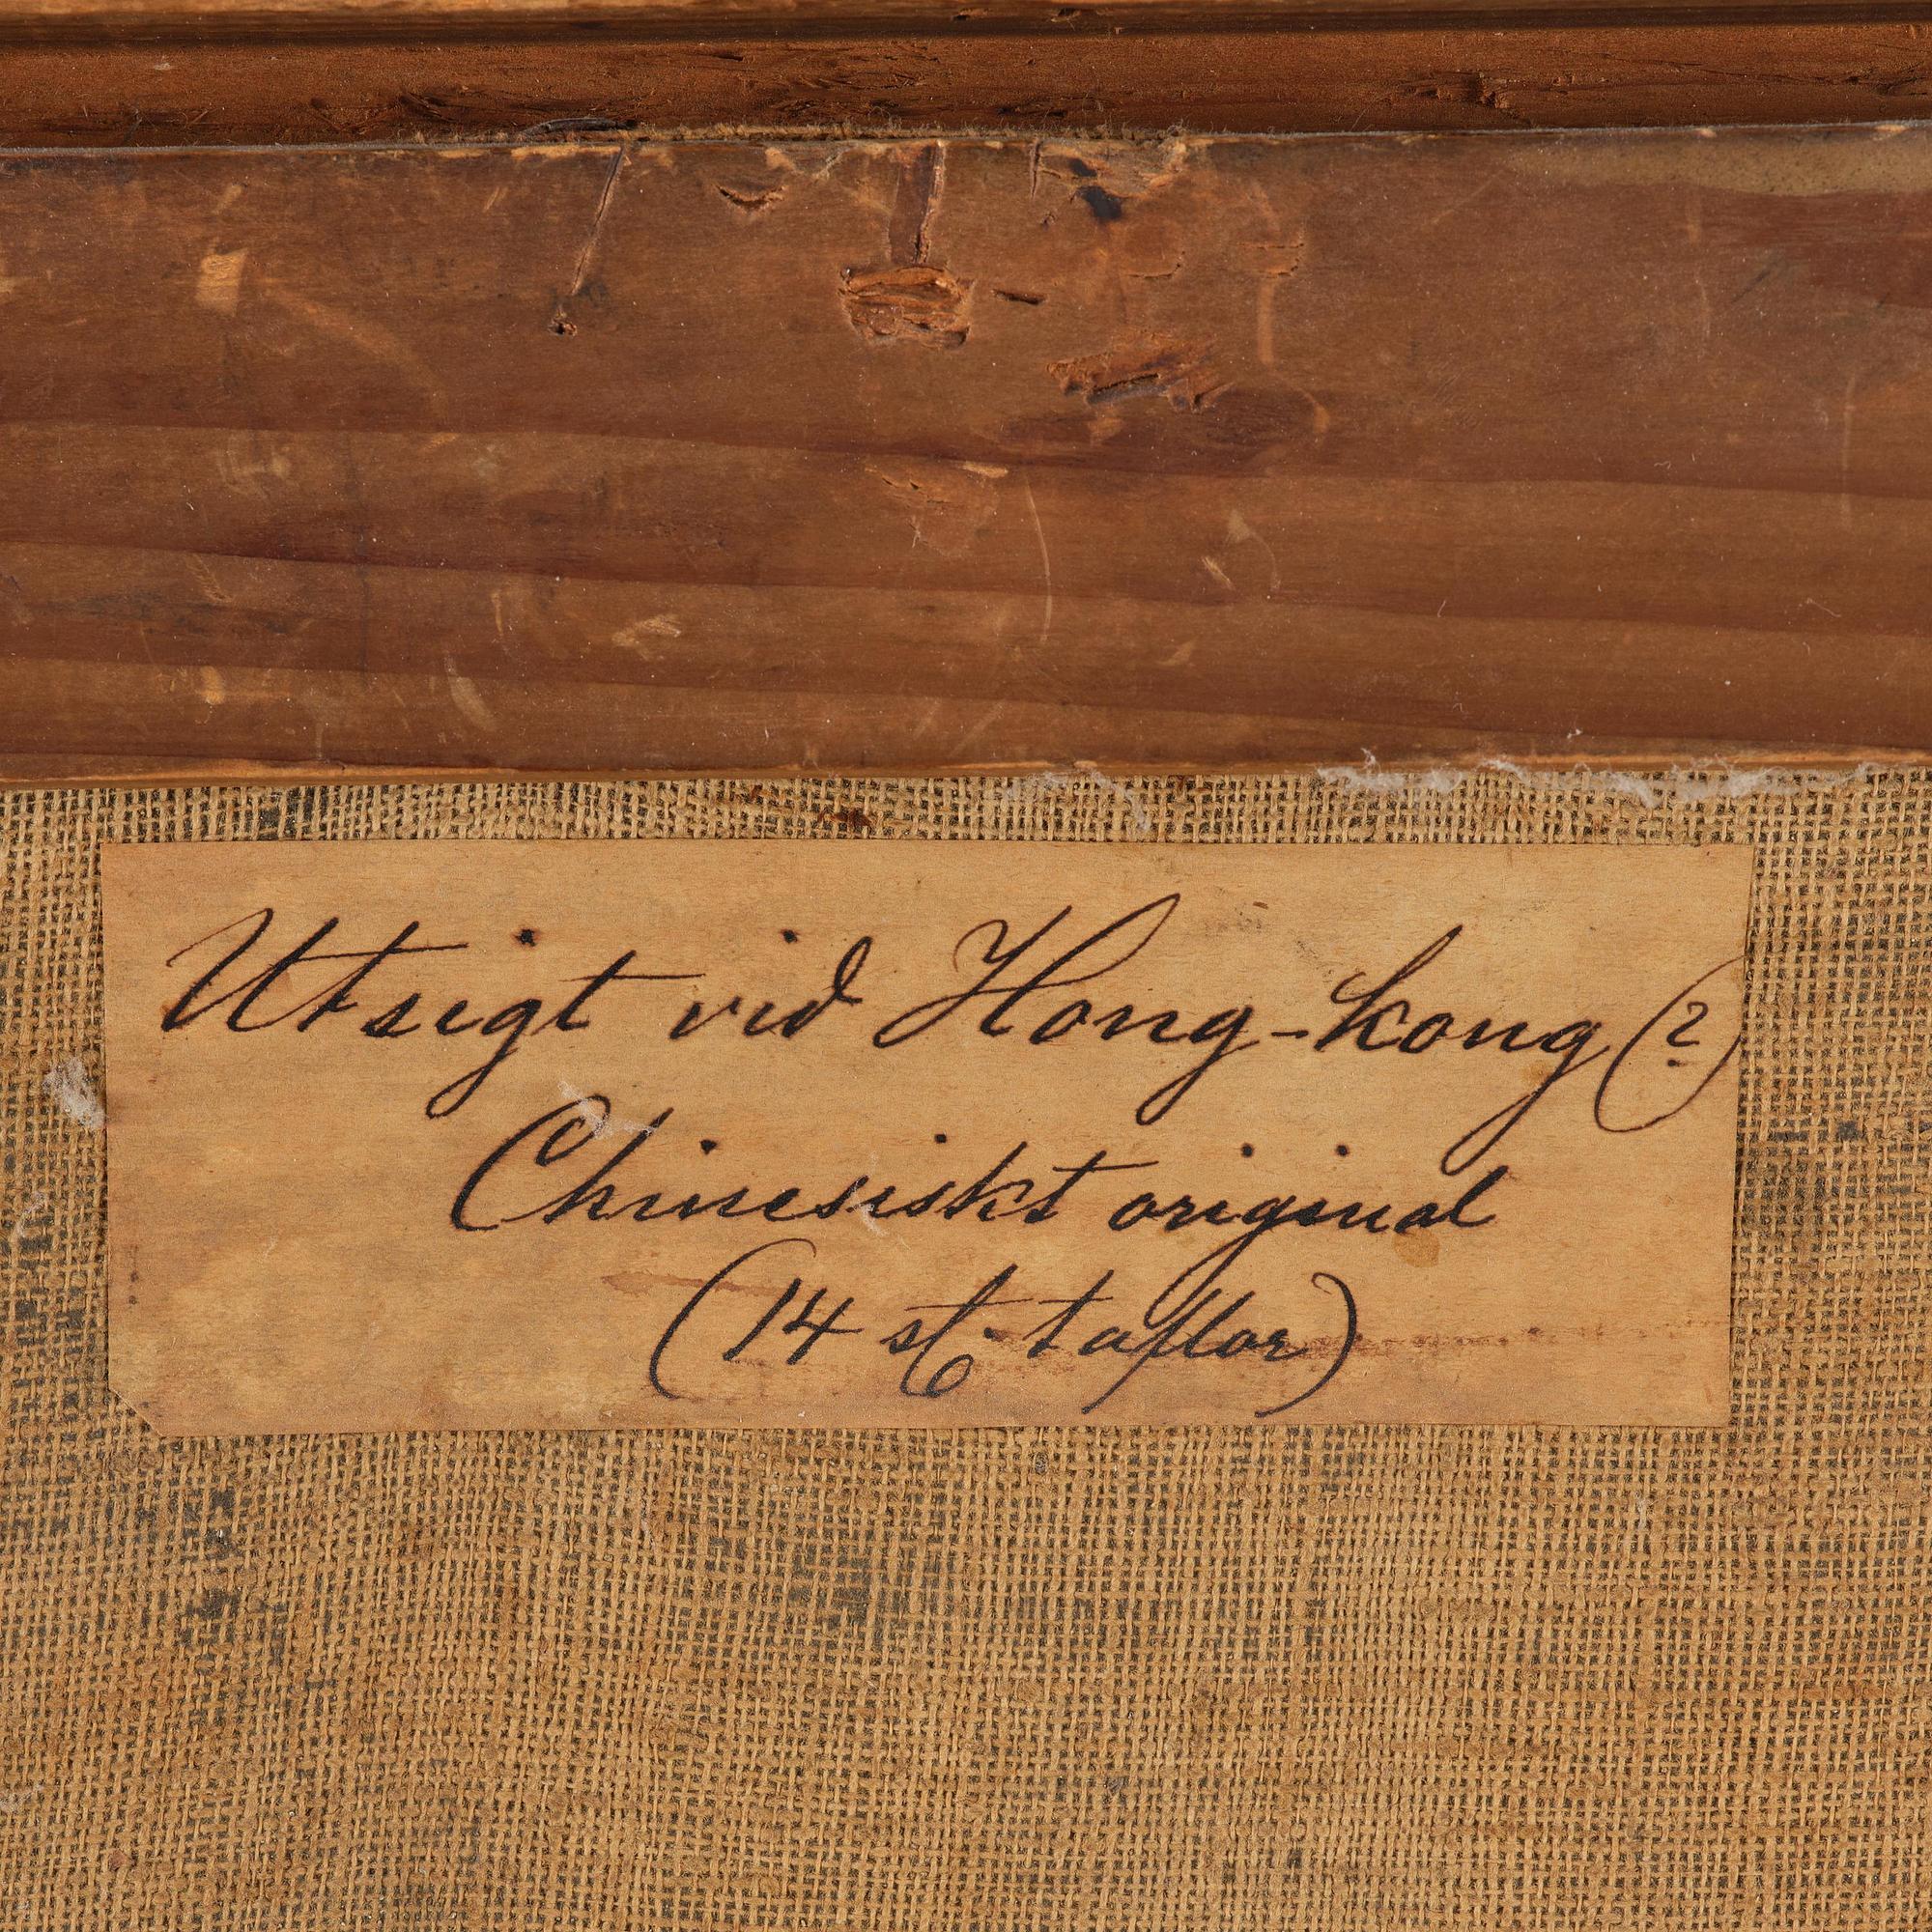 Utsigt vid Hong-kong (?)
Chinesiskt original
(14 st. taflor)